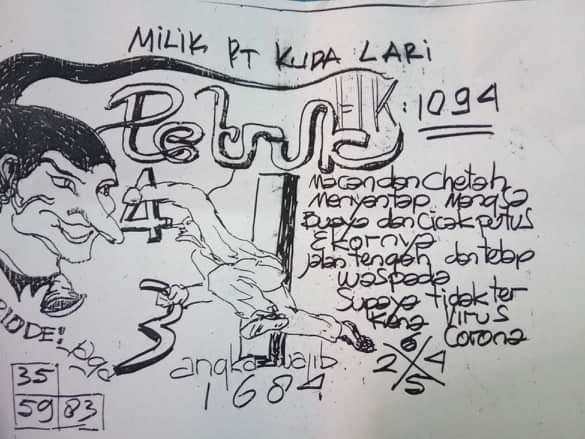 MILIK PT KUDA LARI
Petruk
HK: 1094
4 1
macan dan Chetah
Menyantap Mangsa
Buaya dan Cicak putus
Ekornya
jalan tengah dan tetap
waspada
Supaya tidak ter
Kena Virus
Corona
3
angka wajib
1684
6
2 4
5
35
59 83